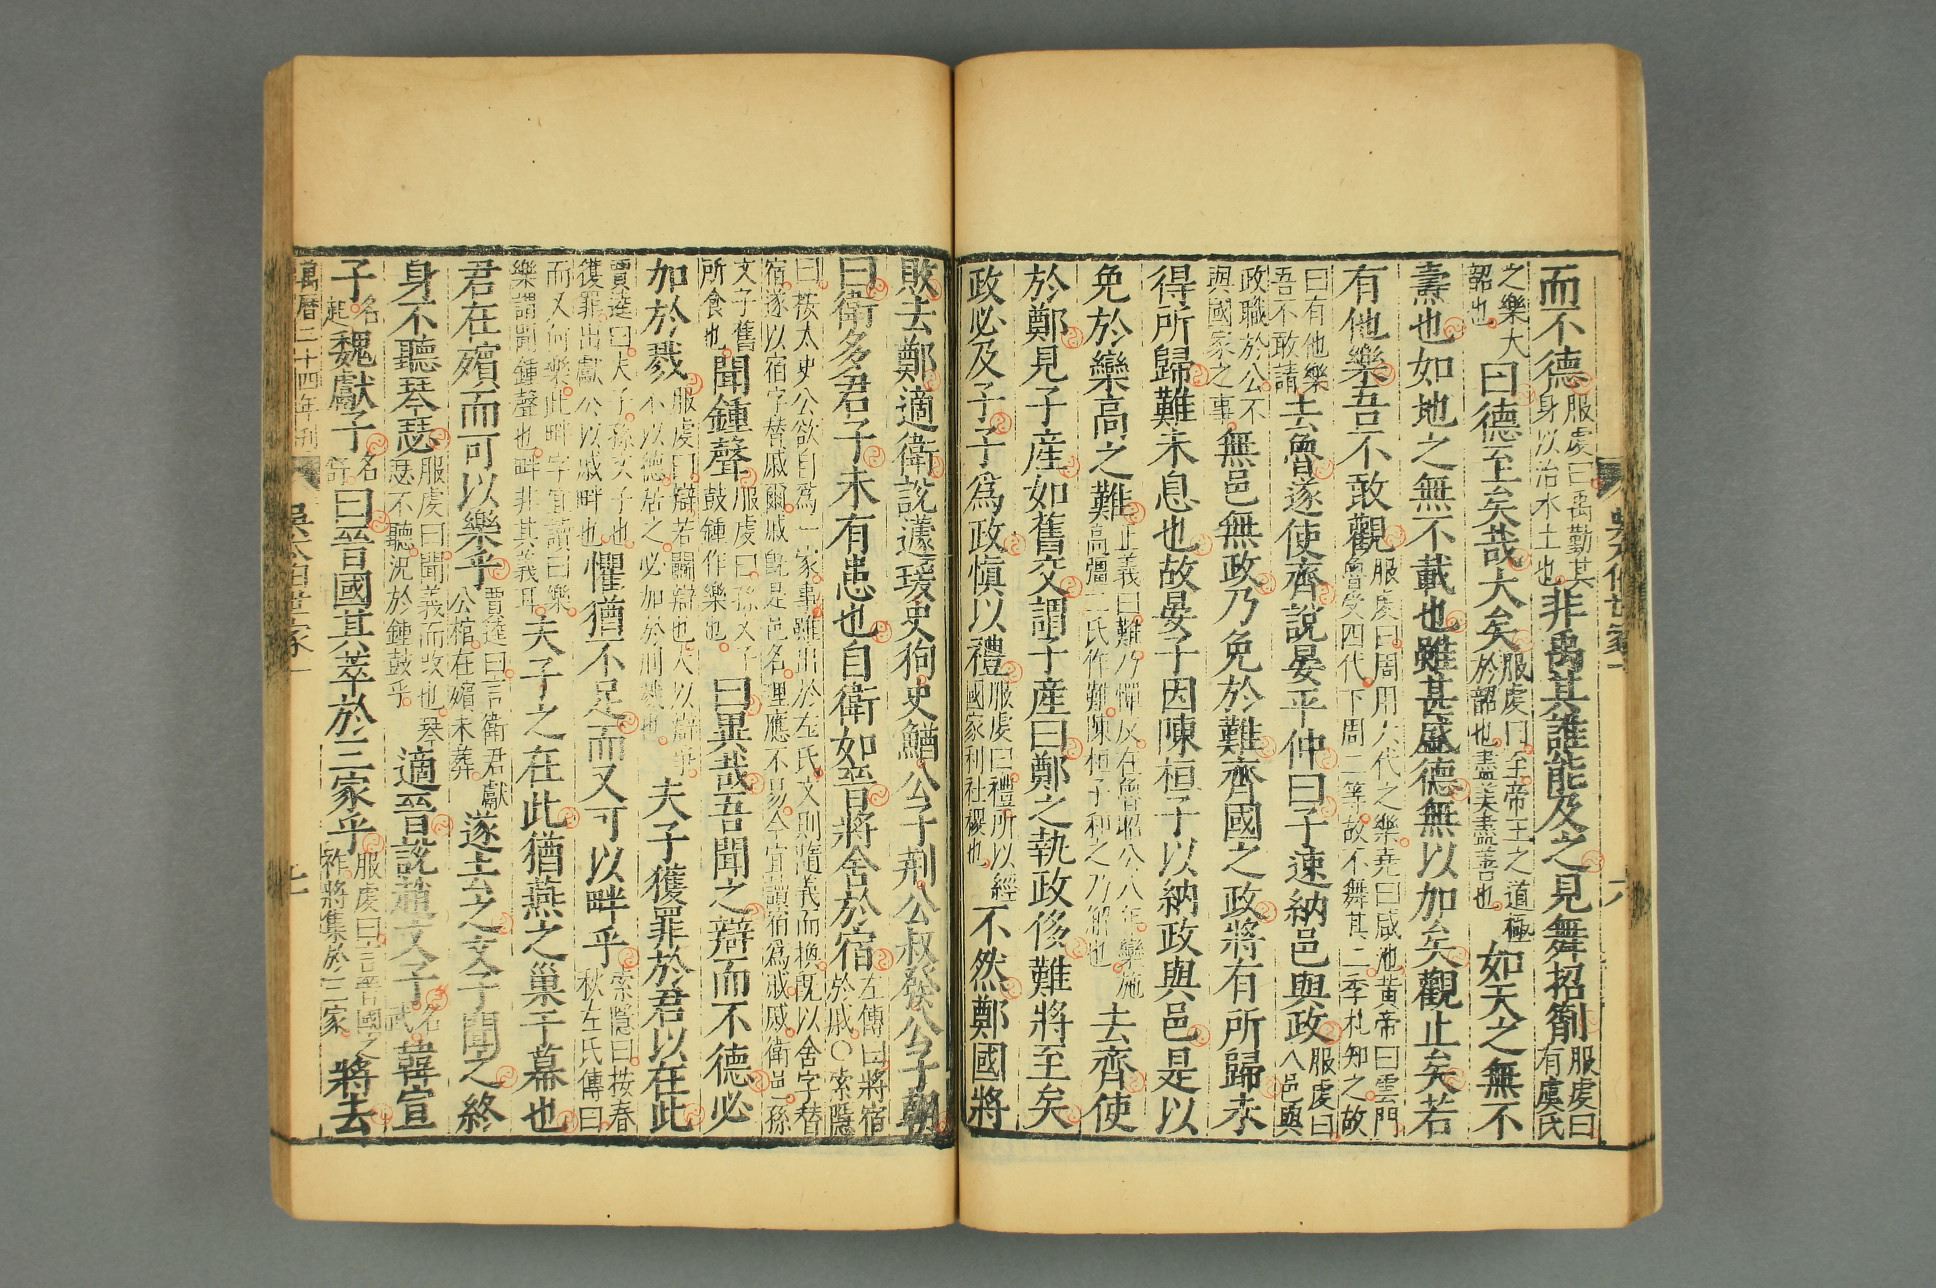 而不德服虔曰禹勤其身以治水土也非禹其誰能及之見舞招箾服虔曰有虞氏
之樂大韶也曰德至矣哉大矣服虔曰至帝王之道極於韶也盡美盡善也如天之無不
燾也如地之無不載也雖甚盛德無以加矣觀止矣若
有他樂吾不敢觀服虔曰周用六代之樂堯曰咸池黃帝曰雲門魯受四代下周二等故不舞其二季札知之故
曰有他樂吾不敢請去魯遂使齊說晏平仲曰子速納邑與政服虔曰入邑與
政職於公不與國家之事無邑無政乃免於難齊國之政將有所歸未
得所歸難未息也故晏子因陳桓子以納政與邑是以
免於欒高之難正義曰難乃憚反在魯昭公八年欒施高彊二氏作難陳桓子和之乃解也去齊使
於鄭見子產如舊交謂子產曰鄭之執政侈難將至矣
政必及子子為政慎以禮服虔曰禮所以經國家利社稷也不然鄭國將
敗去鄭適衛說蘧瑗史狗史鰌公子荊公叔發公子朝
曰衛多君子未有患也自衛如晉將舍於宿左傳曰將宿於戚○索隱
曰按太史公欲自為一家事雖出於左氏文則隨義而換既以舍字替宿遂以宿字替戚爾戚既是邑名理應不易今宜讀宿為戚戚衛邑孫
文子舊所食也聞鍾聲服虔曰孫文子鼓鍾作樂也曰異哉吾聞之辯而不德必
加於戮服虔曰辯若鬭辯也夫以辯爭不以德居之必加於刑戮也夫子獲罪於君以在此
賈逵曰夫子孫文子也獲罪出獻公以戚畔也懼猶不足而又可以畔乎索隱曰按春秋左氏傳曰
而又何樂此畔字宜讀曰樂樂謂聞鍾聲也畔非其義耳夫子之在此猶燕之巢于幕也
君在殯而可以樂乎賈逵曰言衛君獻公棺在殯未葬遂去之文子聞之終
身不聽琴瑟服虔曰聞義而改也琴瑟不聽況於鍾鼓乎適晉說趙文子名武韓宣
子名起魏獻子名舒曰晉國其萃於三家乎服虔曰言晉國之祚將集於三家將去
萬曆二十四年刊
吳太伯世家一
七